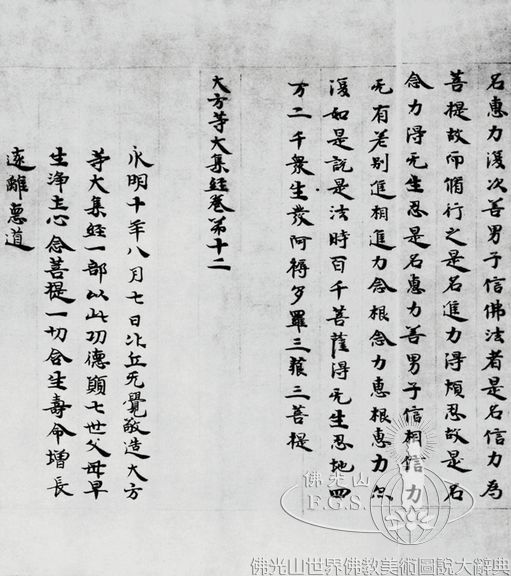 名惠力復次善男子信佛法者是名信力為
菩提故而脩行之是名進力得煩忍故是名
念力得无生忍是名惠力善男子信根信力
无有差別進根進力念根念力惠根惠力尒
復如是說是法時百千菩薩得无生忍地四
万二千衆生發阿耨多羅三藐三菩提
大方等大集經卷第十二
永明十年八月七日比丘无覺敬造大方
等大集經一部以此功德願七世父母早
生淨土心念菩提一切含生壽命增長
遠離惡道
佛光山
F.G.S.
佛光山世界佛教美術圖說大辭典